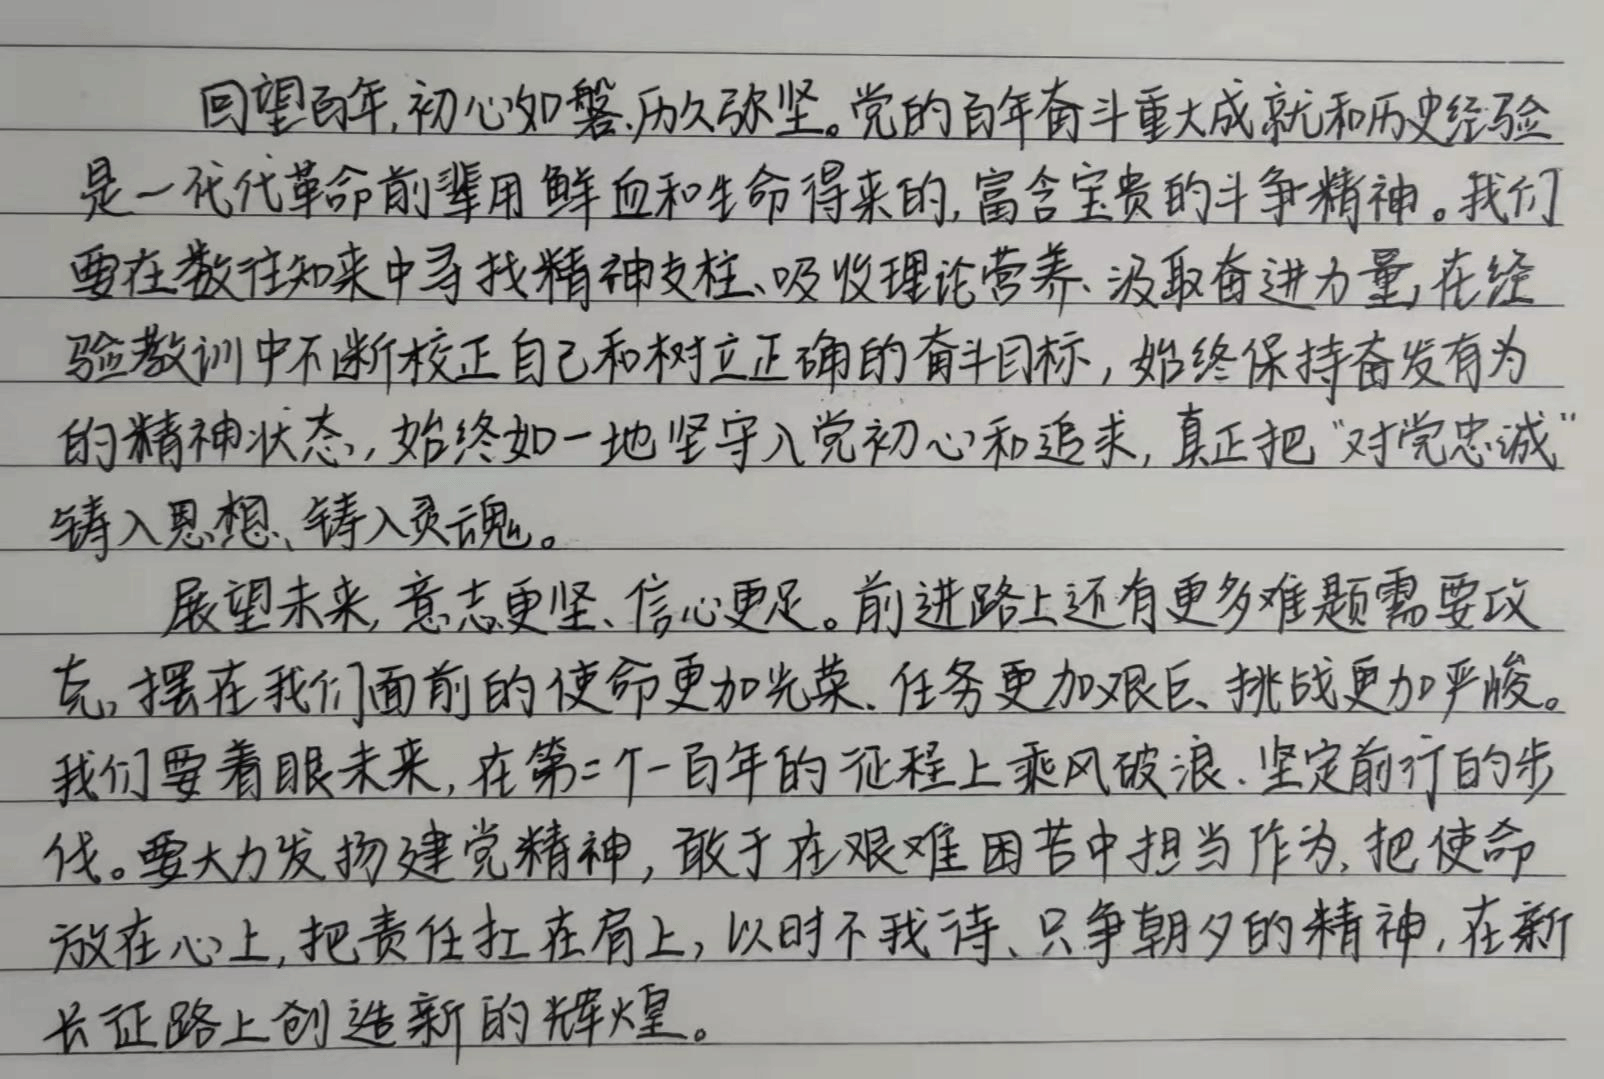 回望百年,初心如磐、历久弥坚。党的百年奋斗重大成就和历史经验
是一代代革命前辈用鲜血和生命得来的,富含宝贵的斗争精神。我们
要在数往知来中寻找精神支柱、吸收理论营养、汲取奋进力量,在经
验教训中不断校正自己和树立正确的奋斗目标,始终保持奋发有为
的精神状态,始终如一地坚守入党初心和追求,真正把“对党忠诚”
铸入思想、铸入灵魂。
展望未来,意志更坚、信心更足。前进路上还有更多难题需要攻
克,摆在我们面前的使命更加光荣、任务更加艰巨、挑战更加严峻。
我们要着眼未来,在第二个一百年的征程上乘风破浪、坚定前行的步
伐。要大力发扬建党精神,敢于在艰难困苦中担当作为,把使命
放在心上,把责任扛在肩上,以时不我待、只争朝夕的精神,在新
长征路上创造新的辉煌。